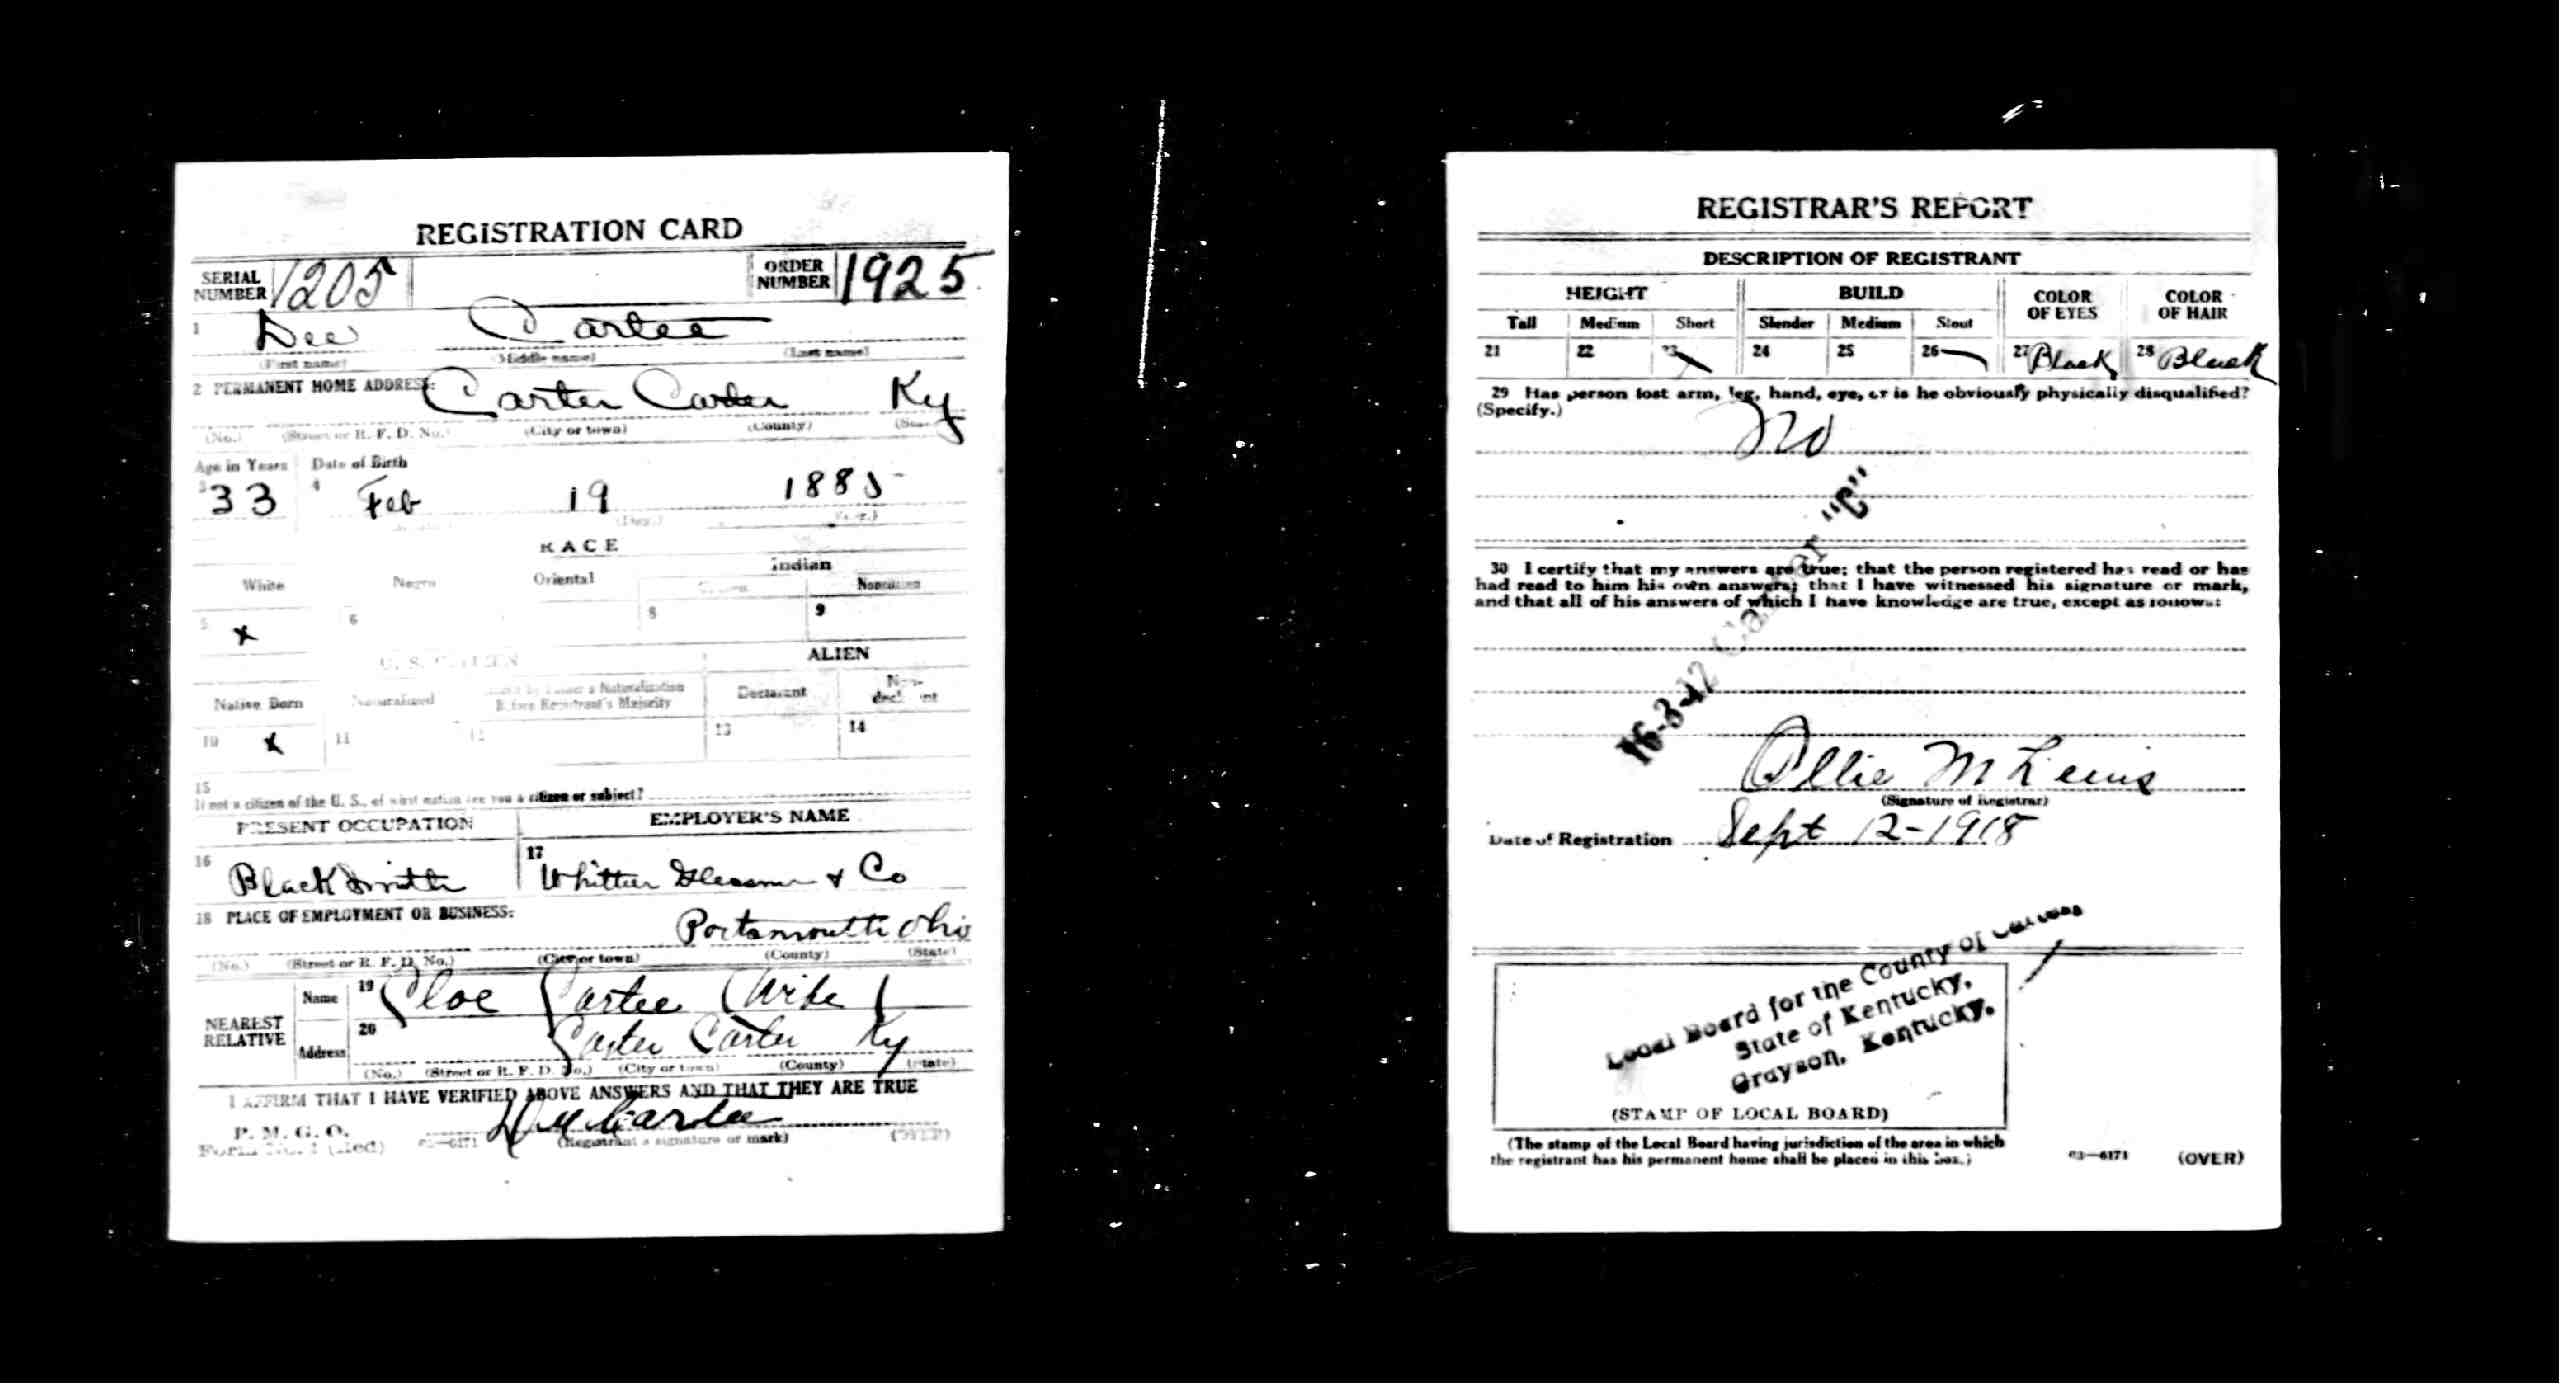 REGISTRATION CARD
SERIAL NUMBER 1205 ORDER NUMBER 1925
1 Dee Cartee
(First name) (Middle name) (Last name)
2 PERMANENT HOME ADDRESS: Carter Carter Ky
(No.) (Street or R. F. D. No.) (City or town) (County) (State)
Age in Years Date of Birth
3 33 4 Feb 19 1885
(Day.) (Year.)
RACE
White Negro Oriental Indian
Citizen Noncitizen
5 x 6 8 9
U. S. CITIZEN ALIEN
Native Born Naturalized Citizen by Father's Naturalization Before Registrant's Majority Declarant Non-declarant
10 x 11 12 13 14
15
If not a citizen of the U. S., of what nation are you a citizen or subject?
PRESENT OCCUPATION EMPLOYER'S NAME
16 Blacksmith 17 Whittier & Co
18 PLACE OF EMPLOYMENT OR BUSINESS:
Portsmouth Ohio
(No.) (Street or R. F. D. No.) (City or town) (County) (State)
NEAREST RELATIVE
Name 19 Cloe Cartee (Wife)
Address 20 Carter Carter Ky
(No.) (Street or R. F. D. No.) (City or town) (County) (State)
I AFFIRM THAT I HAVE VERIFIED ABOVE ANSWERS AND THAT THEY ARE TRUE
P. M. G. O.
Form No. 1 (Red) 03—6171 Dee Cartee
(Registrant's signature or mark) (OVER)
REGISTRAR'S REPORT
DESCRIPTION OF REGISTRANT
HEIGHT BUILD COLOR OF EYES COLOR OF HAIR
Tall Medium Short Slender Medium Stout
21 22 23 24 25 26 27 Black 28 Black
29 Has person lost arm, leg, hand, eye, or is he obviously physically disqualified?
(Specify.)
No
30 I certify that my answers are true; that the person registered has read or has
had read to him his own answers; that I have witnessed his signature or mark,
and that all of his answers of which I have knowledge are true, except as follows:
16-3-12 Carter "C"
Ollie M Lewis
(Signature of Registrar)
Date of Registration Sept 12-1918
Local Board for the County of Carter
State of Kentucky,
Grayson, Kentucky.
(STAMP OF LOCAL BOARD)
(The stamp of the Local Board having jurisdiction of the area in which
the registrant has his permanent home shall be placed in this box.)
03—6171 (OVER)